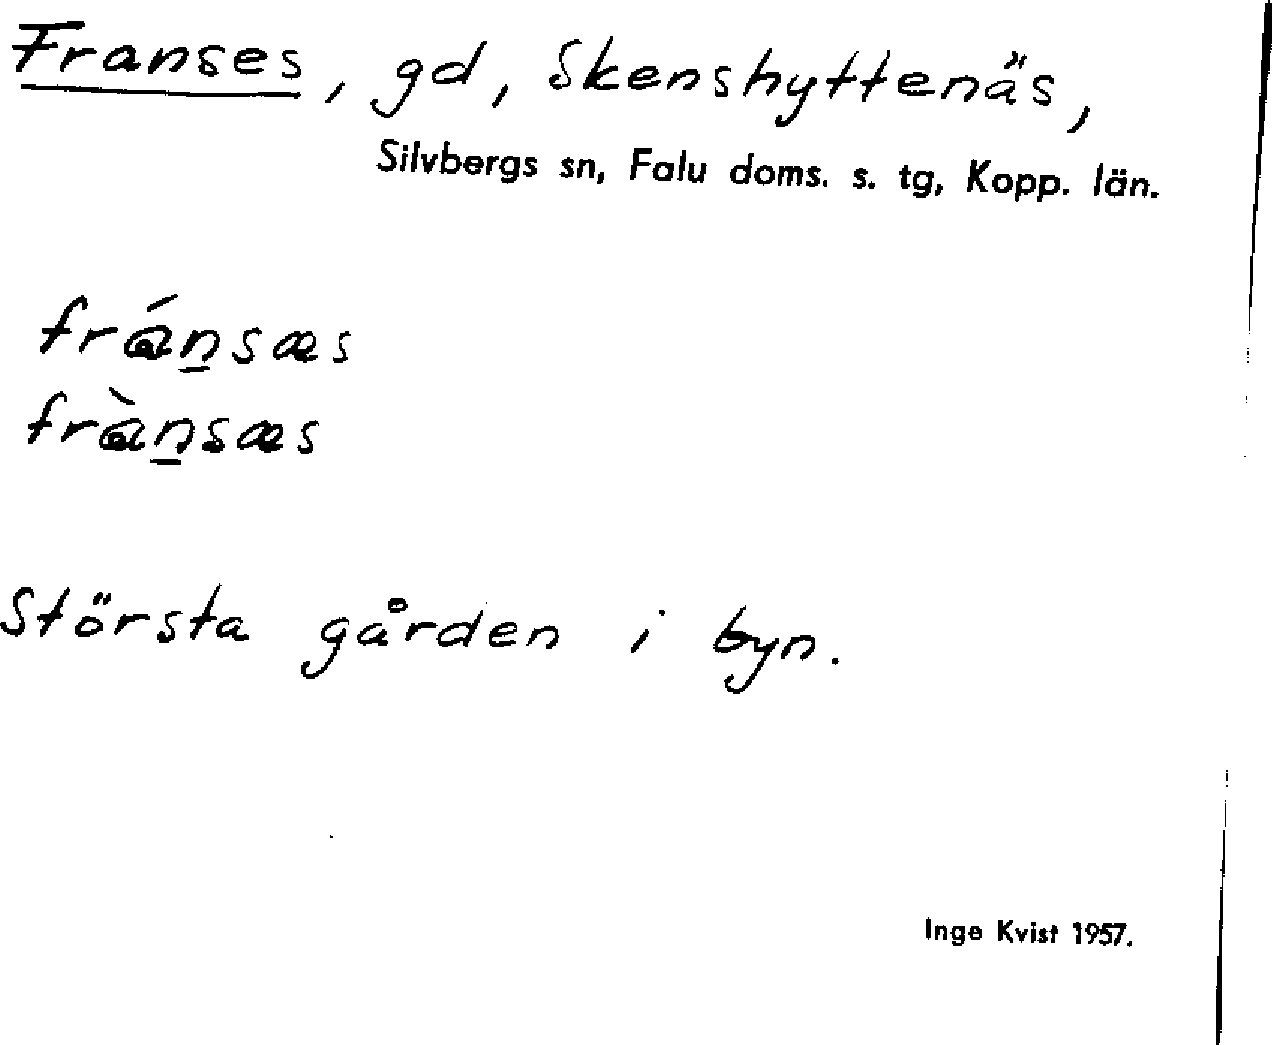 Franses, gd, Skenshyttenäs,
Silvbergs sn, Falu doms. s. tg, Kopp. län.
fránsæs
frànsæs
Största gården i byn.
Inge Kvist 1957.